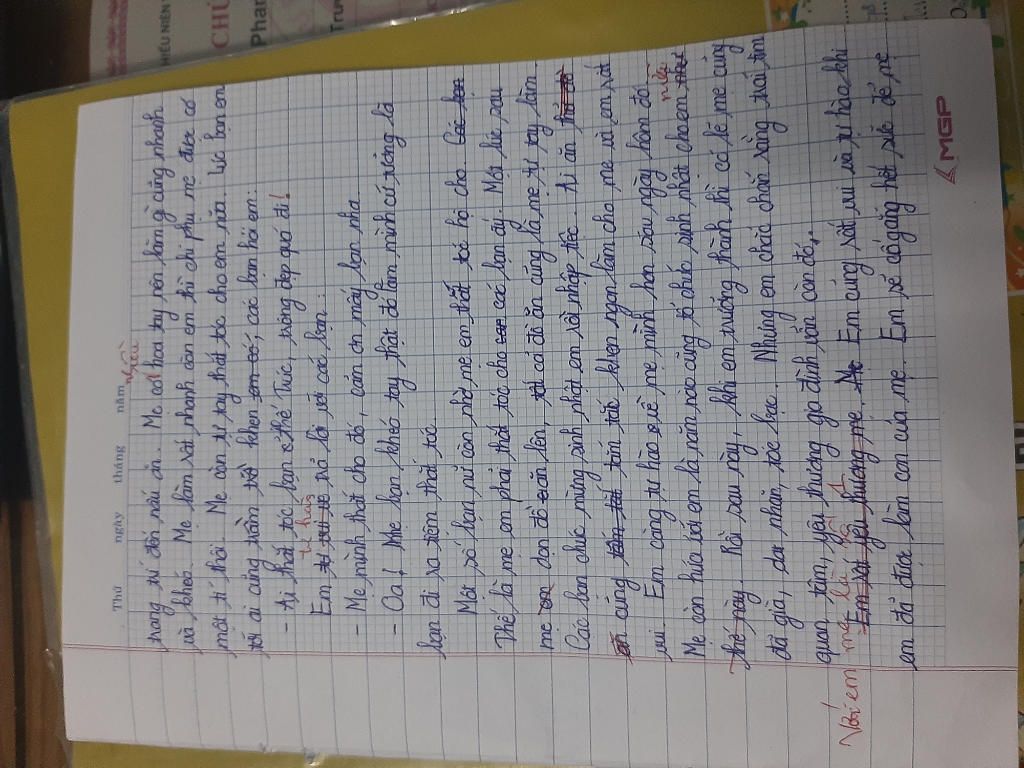 HIẾU NIÊN
CHỦ
Phan
Trư
Thứ ngày tháng năm
nhiều
trang trí đến nấu ăn. Mẹ có hoa tay nên làm gì cũng nhanh
và khéo. Mẹ làm rất nhanh còn em thì chỉ phụ mẹ được có
một tí thôi. Mẹ còn tự tay thắt tóc cho em nữa. Lúc bạn em
tới ai cũng trầm trồ khen em tóc, các bạn hỏi em:
- Ai thắt tóc bạn thế Trúc, trông đẹp quá đi!
tự hào
Em trả lời với các bạn:
- Mẹ mình thắt cho đó, cán ơn mấy bạn nha.
- Oa! Mẹ bạn khéo tay thật đó làm mình cứ tưởng là
bạn đi ra tiệm thắt tóc.
Một số bạn nữ còn nhờ mẹ em thắt tóc hộ cho. Các bạn
Thế là mẹ em phải thắt tóc cho các bạn ấy. Một lúc sau
mẹ dọn đồ ăn lên, cả đồ ăn cũng là mẹ tự tay làm.
Các bạn chúc mừng sinh nhật em rồi nhập tiệc. Ai ăn
cũng tấm tắc khen ngon làm cho mẹ và em rất
vui. Em càng tự hào về mẹ mình hơn sau ngày hôm đó.
nữa
Mẹ còn hứa với em là năm nào cũng tổ chức sinh nhật cho em
thế này. Rồi sau này, khi em trưởng thành thì có lẽ mẹ cũng
đã già, da nhăn, tóc bạc. Nhưng em chắc chắn rằng trái tim
quan tâm, yêu thương gia đình vẫn còn đó.
Với em mẹ là
Em rất yêu thương mẹ. Em cũng rất vui và tự hào khi
em đã được làm con của mẹ. Em sẽ cố gắng hết sức để mẹ
MGP